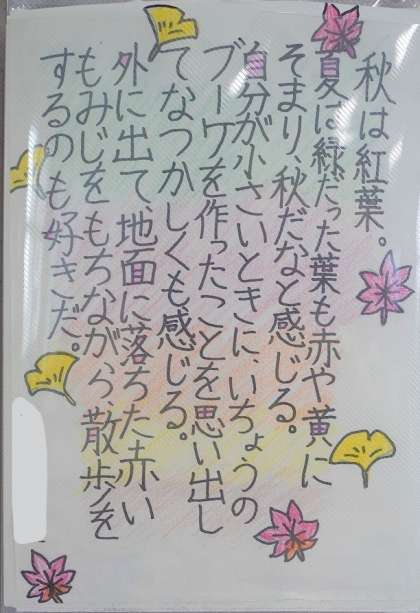 秋は紅葉。
夏は緑だった葉も赤や黄に
そまり、秋だなと感じる。
自分が小さいときに、いちょうの
ブーケを作ったことを思い出し
てなつかしくも感じる。
外に出て、地面に落ちた赤い
もみじをもちながら、散歩を
するのも好きだ。